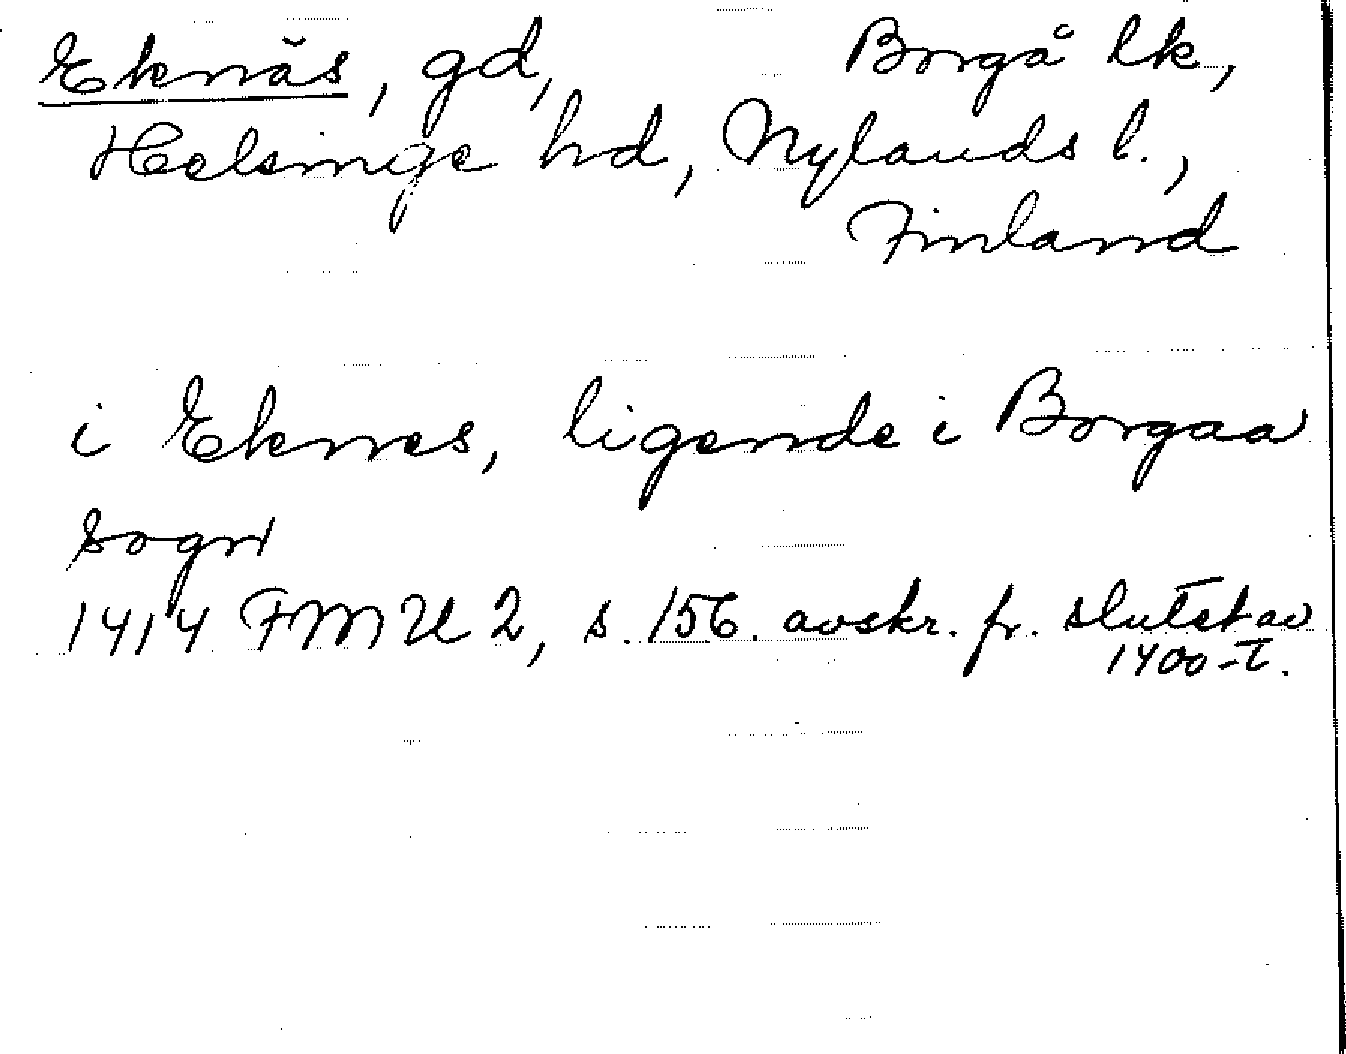 Eknäs, gd, Borgå lk,
Helsinge hd, Nylands l.,
Finland
i Eknes, ligende i Borgaa
sogn
1414 FMU 2, s. 156. avskr. fr. slutet av
1400-t.